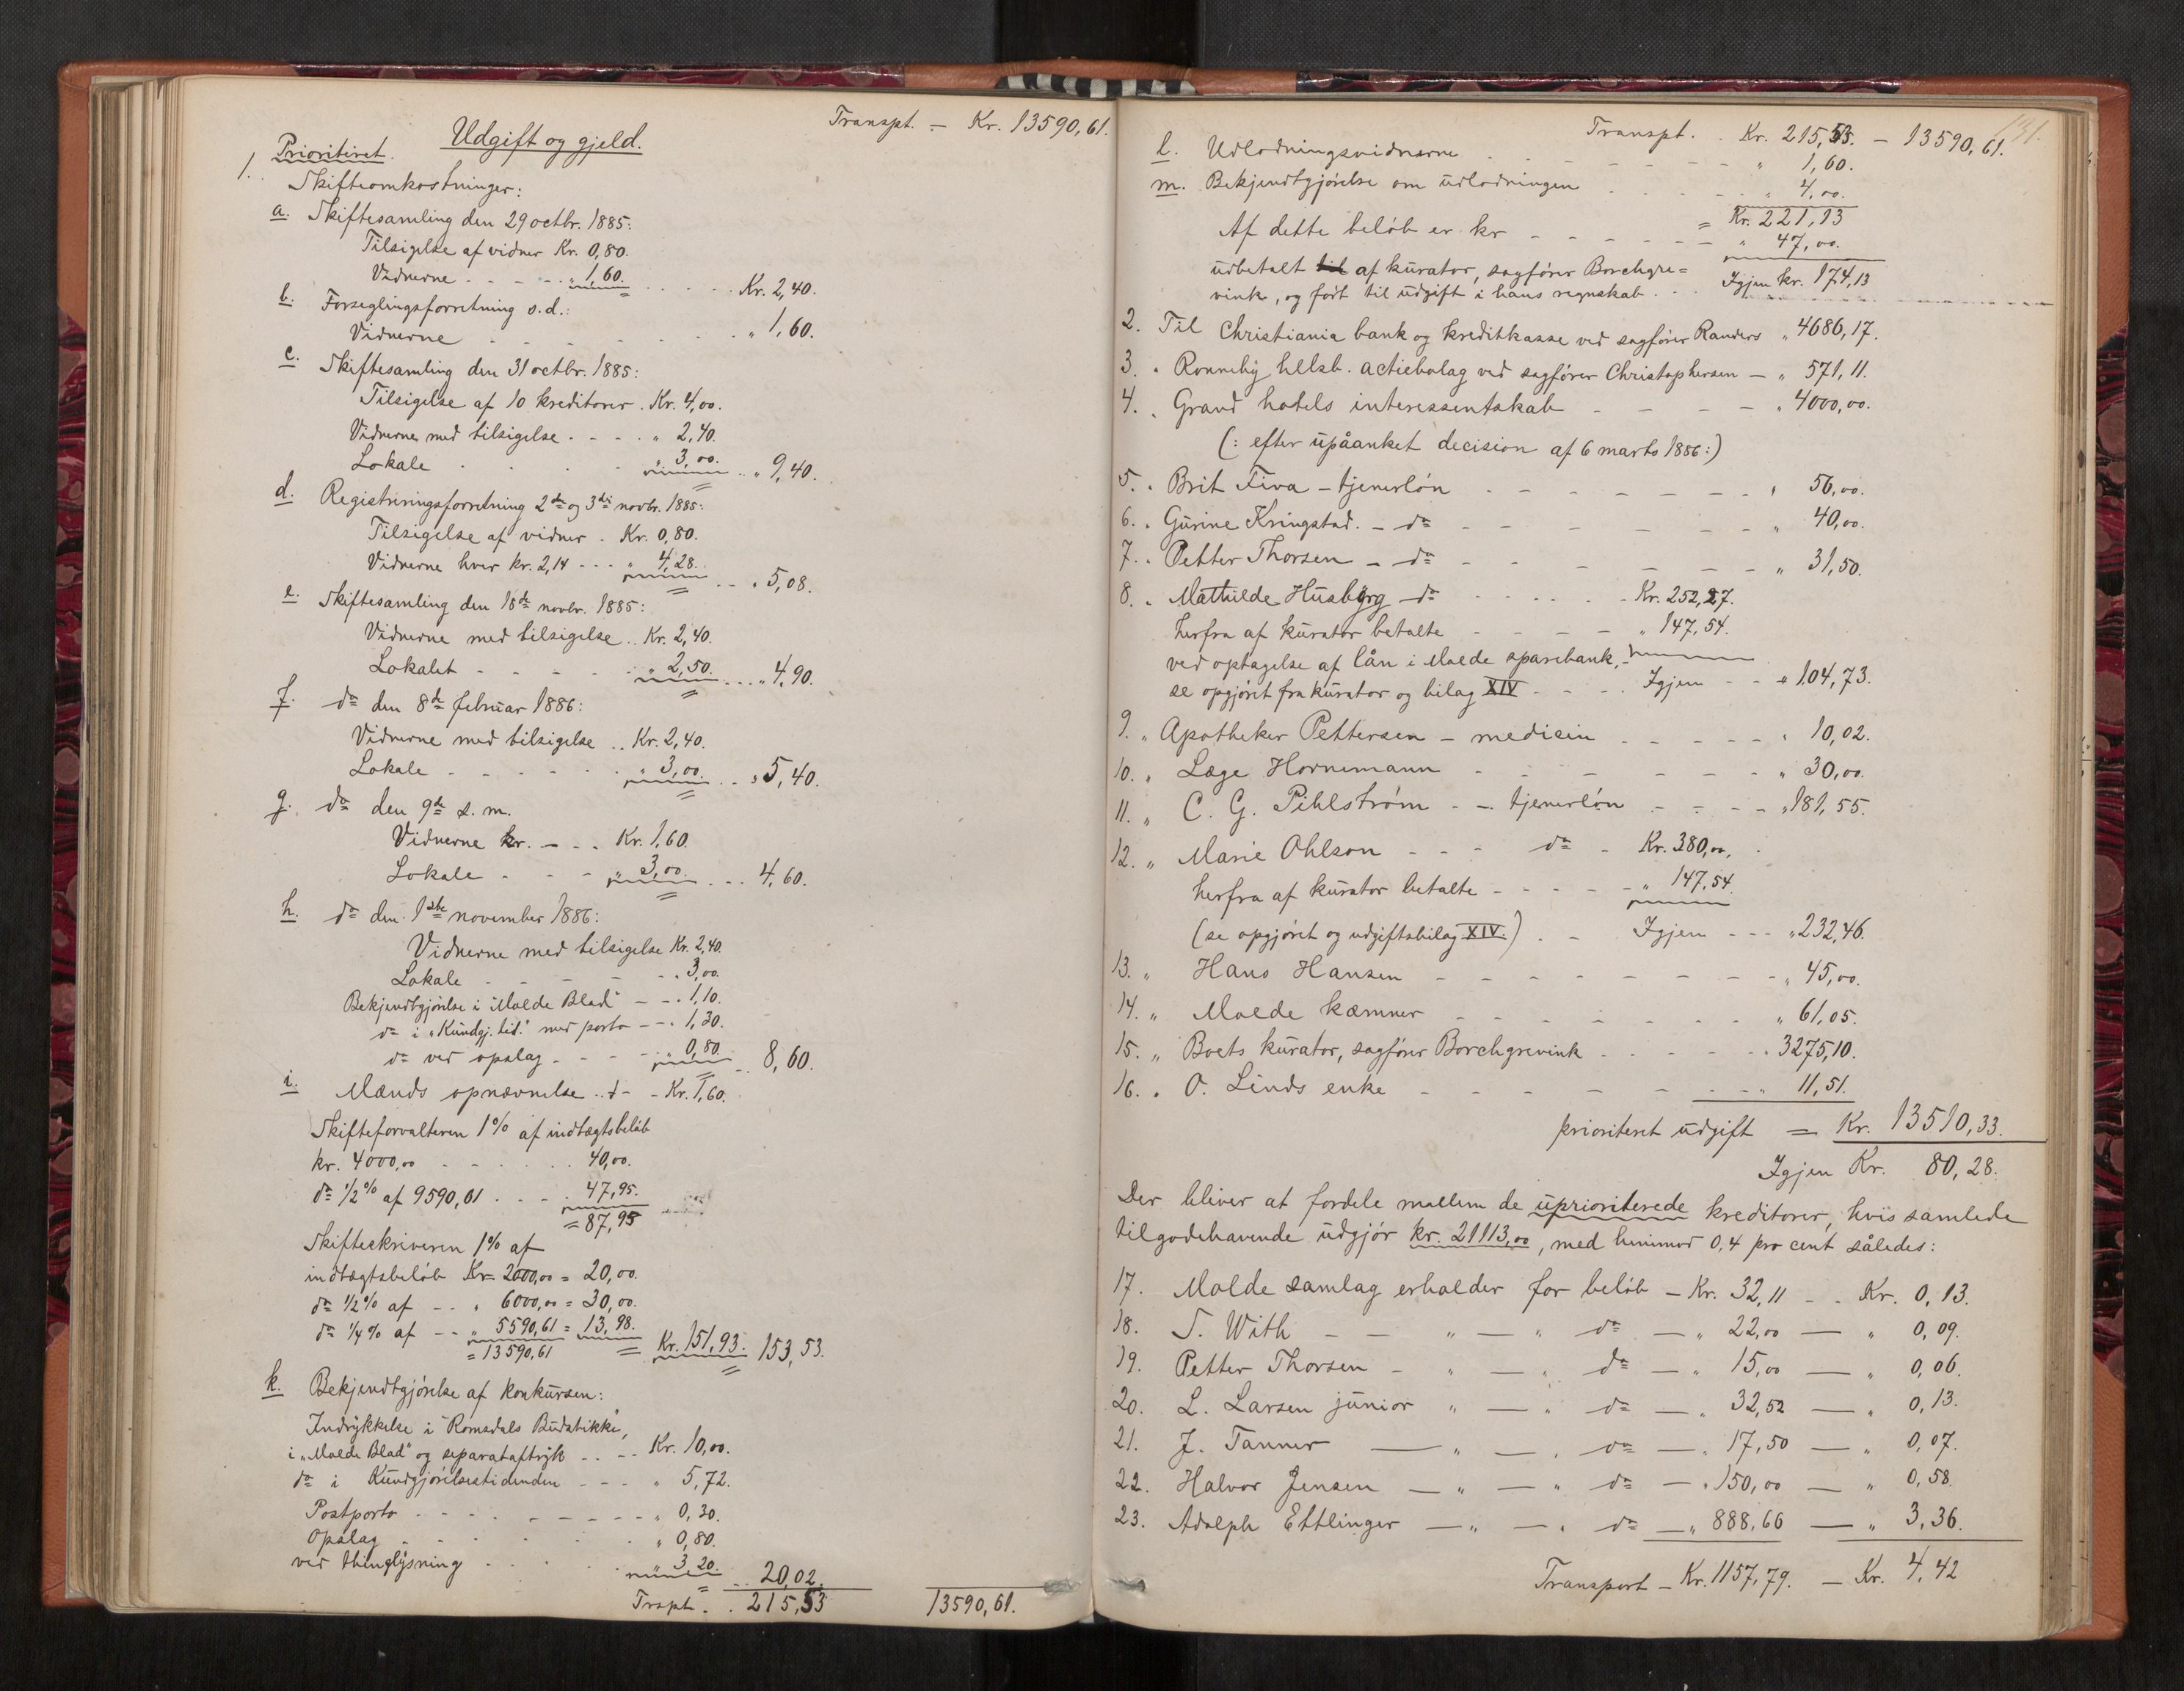 Transpt. – Kr. 13590,61.
Udgift og gjeld.
1. Prioriteret.
Skifteomkostninger:
a. Skiftesamling den 29 octbr. 1885:
Tilsigelse af vidner Kr. 0,80.
Vidnerne . - - - „ 1,60. . . . . Kr. 2,40.
b. Forseglingsforretning s.d.:
Vidnerne - - - - - - „ 1,60.
c. Skiftesamling den 31 octbr. 1885:
Tilsigelse af 10 kreditorer . Kr. 4,00.
Vidnerne med tilsigelse . - - . „ 2,40.
Lokale . . . „ 3,00. . . „ 9,40.
d. Registreringsforretning 2de og 3die novbr. 1885:
Tilsigelse af vidner . Kr. 0,80.
Vidnerne hver kr. 2,14 - - - „ 4,28. - - . 5,08.
e. Skiftesamling den 18de novbr. 1885:
Vidnerne med tilsigelse . . Kr. 2,40.
Lokalet - - - - „ 2,50. . . . „ 4,90.
f. do den 8de februar 1886:
Vidnerne med tilsigelse . . Kr. 2,40.
Lokale - - - - „ 3,00. . . „ 5,40.
g. do den 9de s. m.
Vidnerne kr. - - . Kr. 1,60.
Lokale - - - „ 3,00. . . . 4,60.
h. do den 1ste november 1886:
Vidnerne med tilsigelse Kr. 2,40.
Lokale - - - - . 3,00.
Bekjendtgjørelse i "Molde Blad" - - . 1,10.
do i „Kundgj. tid." med porto - - . 1,30.
do ved opslag - - - „ 0,80. . . 8,60.
i. Mænds opnævnelse . . - - Kr. 1,60.
Skifteforvalteren 1% af indtægtsbeløb
kr. 4000,00 - - . . . 40,00.
do 1/2% af 9590,61 . . - . 47,95.
= 87,95
Skifteskriveren 1% af
indtægtsbeløb Kr. 2000,00 = 20,00.
do 1/2% af - - „ 6000,00 = 30,00.
do 1/4% af - - „ 5590,61 = 13,98.
= 13590,61 = Kr. 151,93. 153,53.
k. Bekjendtgjørelse af konkursen:
Indrykkelse i "Romsdals Budstikke",
i „Molde Blad" og separataftryk . . - . Kr. 10,00.
do i Kundgjørelsestidenden - - - „ 5,72.
Postporto - - - - - - - „ 0,30.
Opslag - - - - - „ 0,80.
ved thinglysning - - . . „ 3,20. . . 20,02.
Trspt. . . 215,53 13590,61.
191.
Transpt. . Kr. 215,53. – 13590,61.
l. Udlodningsvidnerne . - - - - - - „ 1,60.
m. Bekjendtgjørelse om udlodningen . - - - - „ 4,00.
= Kr. 221,13
Af dette beløb er kr - - - - - „ 47,00.
udbetalt til af kurator, sagfører Borchgre=
vink, og ført til udgift i hans regnskab . . Igjen kr. 174,13
2. Til Christiania bank og kreditkasse ved sagfører Randers „ 4686,17.
3. „ Ronneby helsb. actiebolag ved sagfører Christophersen – „ 571,11.
4. „ Grand hotels interessentskab - - - - „ 4000,00.
(: efter upåanket decision af 6 marts 1886:)
5. „ Brit Fiva – tjenerløn - - - - - - „ 56,00.
6. „ Gurine Kringstad. – do - - - - - „ 40,00.
7. „ Petter Thorsen – do - - - - - - „ 31,50.
8. „ Mathilde Husbyrg do . . . . . Kr. 252,27.
herfra af kurator betalte - - - - „ 147,54.
ved optagelse af lån i Molde sparebank,
se opgjøret fra kurator og bilag XIV - - - . Igjen - - „ 104,73.
9. „ Apotheker Pettersen – medicin - - - - - „ 10,02.
10. „ Læge Hornemann - - - - - - - „ 30,00.
11. „ C. G. Pihlstrøm - - tjenerløn - - - - „ 181,55.
12. „ Marie Ohlson - - - do - Kr. 380,00.
herfra af kurator betalte - - - - - „ 147,54.
(se opgjøret og udgiftsbilag XIV.) . - Igjen - - - „ 232,46.
13. „ Hans Hansen - - - - - - - - „ 45,00.
14. „ Molde kæmner - - - - - - - „ 61,05.
15. „ Boets kurator, sagfører Borchgrevink . - - - - . 3275,10.
16. „ O. Linds enke - - - - - - - - „ 11,51.
prioriteret udgift = Kr. 13510,33.
Igjen Kr. 80,28.
Der bliver at fordele mellem de uprioriterede kreditorer, hvis samlede
tilgodehavende udgjør kr. 21113,00, med henimod 0,4 pro cent således:
17. Molde samlag erholder for beløb – Kr. 32,11 - . Kr. 0,13.
18. S. With — — „ — „ do — „ 22,00 — „ 0,09.
19. Petter Thorsen - „ — „ do — „ 15,00 — „ 0,06.
20. L. Larsen junior „ — „ do — „ 32,52 — „ 0,13.
21. J. Tanner — „ — „ do — „ 17,50 — „ 0,07.
22. Halvor Jensen — „ — „ do — „ 150,00 — „ 0,58.
23. Adolph Ettlinger — „ — „ do — „ 888,66 — „ 3,36.
Transport – Kr. 1157,79. – Kr. 4,42